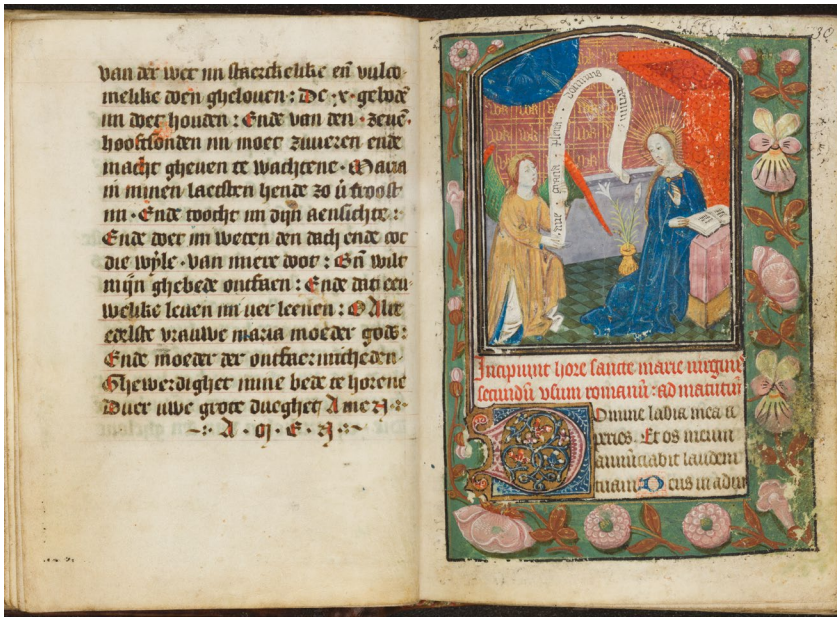 van der wet mi staerckelike eñ vulco
melike doen ghelouen : De · x · gebodē
mi doet houden : Ende van den · zeuē ·
hooftsonden mi moet zuueren ende
macht gheuen te wachtene · Maria
in minen laetsten hende zo ū troost
mi · Ende toocht mi dijn aensichte :
Ende doet mi weten den dach ende tot
die wyle · van miere doot : Eñ wilt
mijn ghebede ontfaen : Ende dat eeu
welike leuen mi verleenen : O Alre
edelste vrauwe maria moeder gods :
Ende moeder der ontfaermicheden ·
Ghewerdighet mine bede te horene
Duer uwe grote dueghet Amen
A · M · E · N
30
Aue gratia plena dominus
Incipiunt hore sancte marie virginis
secundū vsum romanū : ad matutin̄
Domine labia mea a
peries · Et os meum
annūciabit laudem
tuam Deus in adiu